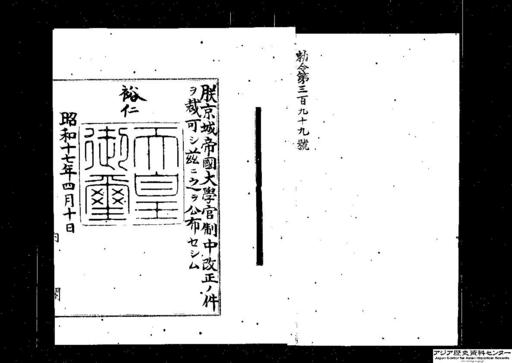 勅令第三百九十九號
朕京城帝國大學官制中改正ノ件
ヲ裁可シ茲ニ之ヲ公布セシム
裕仁
天皇
御璽
昭和十七年四月十日
アジア歴史資料センター
Japan Center for Asian Historical Records